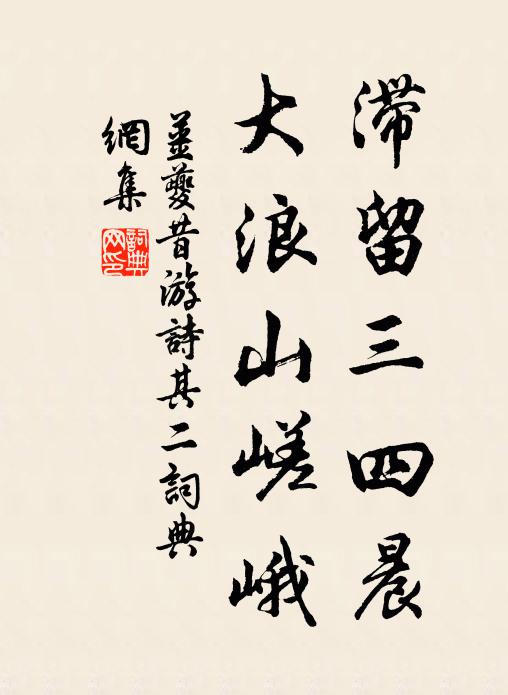 滞留三四晨
大浪山嵯峨
姜夔昔游詩其二詞典
網集
詞典
网印